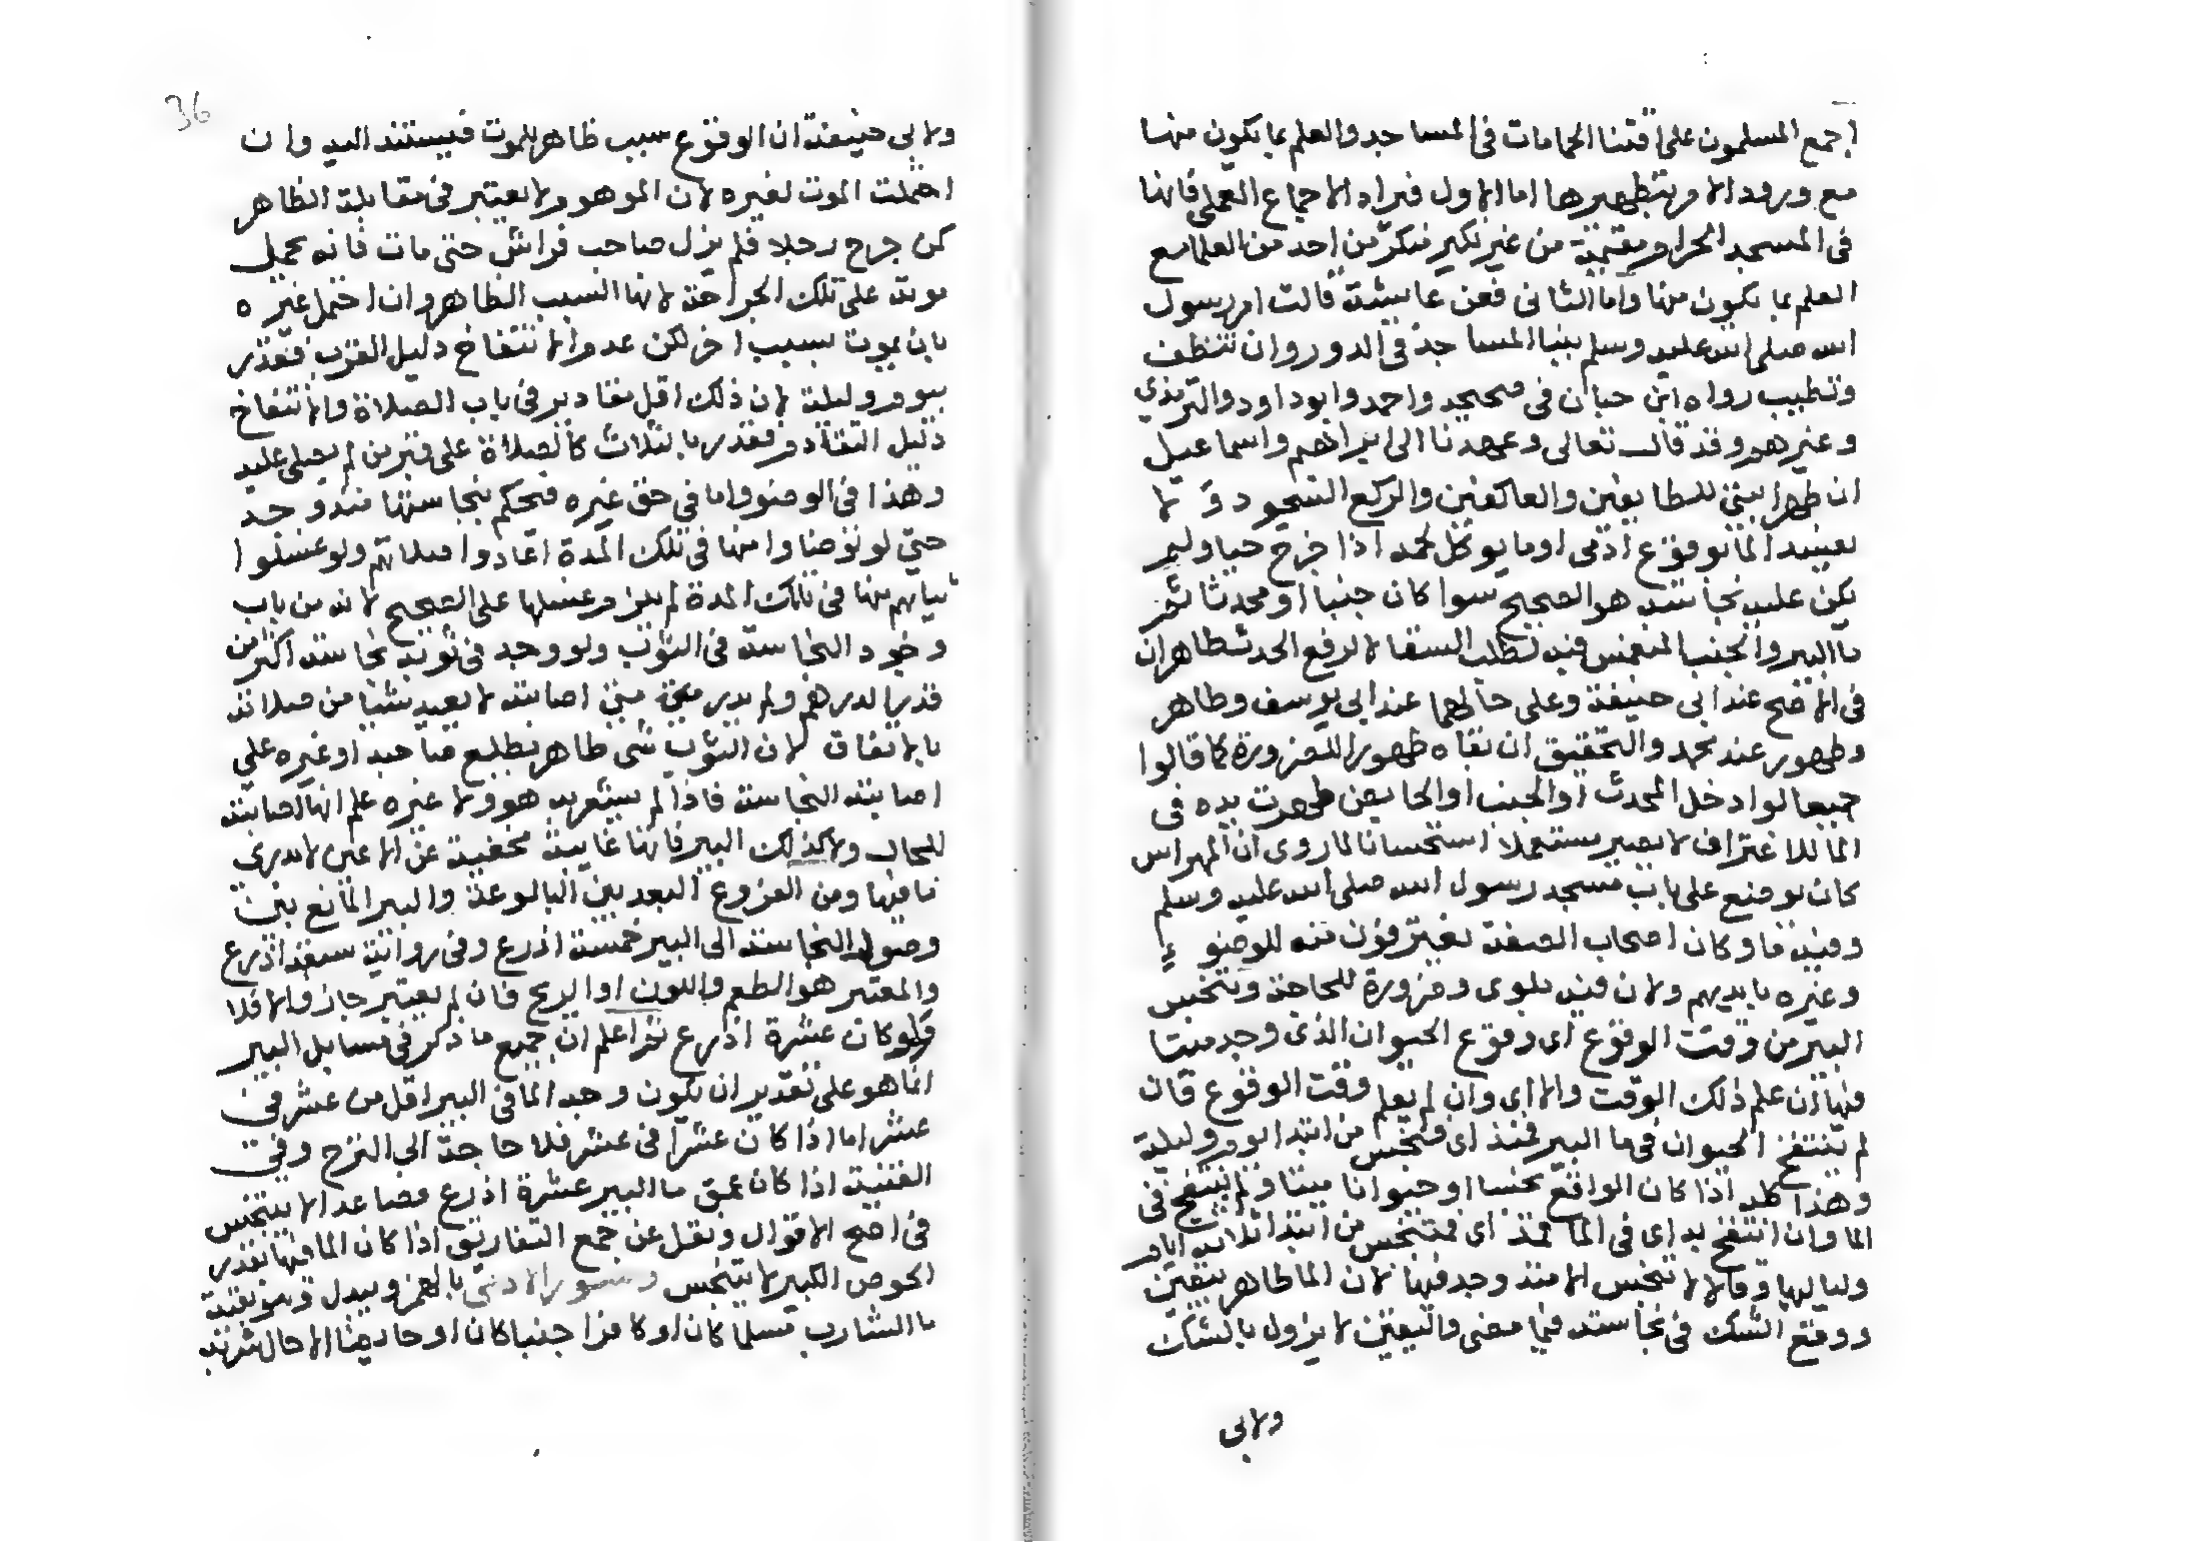 اجمع المسلمون على اقتنا الحمامات في المساجد والعلم بما يكون منها
مع ورود الامر بتطهيرها اما الاول فيراد الاجماع العملي فانها
في المسجد الحرام مقيمة من غير نكير منكر من احد من العلما مع
العلم بما يكون منها واما الثاني فعن عايشة قالت امر رسول
الله صلى الله عليه وسلم ببنا المساجد في الدور وان تنظف
وتطيب رواه ابن حبان في صحيحه واحمد وابو داود والترمذي
وغيرهم وقد قال تعالى وعهدنا الى ابراهيم واسماعيل
ان طهرا بيتي للطايفين والعاكفين والركع السجود و لا
يفسد الما بوقوع ادمى او ما يوكل لحمه اذا خرج حيا ولم
يكن عليه نجاسة هو الصحيح سوا كان جنبا او محدثا ثم
ما البير والجنب المنغمس فيه لطلب السقا لا لرفع الحدث طاهران
في الاصح عند ابي حنيفة وعلى حالهما عند ابي يوسف وطاهر
وطهور عند محمد والتحقيق ان بقاه طهورا للضرورة كما قالوا
جميعا لو ادخل المحدث او الجنب او الحايض طهرت يده في
الما للاغتراف لا يصير مستعملا استحسانا لما روى ان المهراس
كان يوضع على باب مسجد رسول الله صلى الله عليه وسلم
وفيه ما وكان اصحاب الصفة يغترفون منه للوضوء
وغيره بايديهم ولان فيه بلوى وضرورة للحاجة وينجس
البير من وقت الوقوع اى وقوع الحيوان الذى وجد ميتا
فيها ان علم ذلك الوقت والا اى وان لم يعلم وقت الوقوع فان
لم ينتفخ الحيوان في ما البير فمنذ اى فينجس من ابتدا يوم وليلة
وهذا كله اذا كان الواقع نجسا او حيوانا ميتا ولم ينتفخ في
الما وان انتفخ به اى في الما فمنذ اى فتنجس من ابتدا ثلاثة ايام
ولياليها وقالا لا تنجس الا منذ وجد فيها لان الما طاهر بيقين
ووقع الشك في نجاسته فيما مضى واليقين لا يزول بالشك
ولابي
36
ولابي حنيفة ان الوقوع سبب ظاهر للموت فيستند اليه وان
احتملت الموت لغيره لان الموهوم لا يعتبر في مقابلة الظاهر
كمن جرح رجلا فلم يزل صاحب فراش حتى مات فانه يحمل
موته على تلك الجراحة لانها السبب الظاهر وان احتمل غيره
بان يموت بسبب اخر لكن عدم الانتفاخ دليل القرب فقدر
بيوم وليلة لان ذلك اقل مقادير في باب الصلاة والانتفاخ
دليل التقادم فقدر بالثلاث كالصلاة على قبر من لم يصلى عليه
وهذا في الوضو واما في حق غيره فحكم بنجاستها منذ وجد
حتى لو توضاوا منها في تلك المدة اعادوا صلاتهم ولو غسلوا
ثيابهم منها في تلك المدة لم يلزم غسلها على الصحيح لانه من باب
وجود النجاسة في الثوب ولو وجد في ثوبه نجاسة اكثر من
قدر الدرهم ولم يدر متى اصابته لا يعيد شيا من صلاته
بالاتفاق لان الثوب شى ظاهر يطلع صاحبه او غيره على
اصابته النجاسة فاذا لم يشعر به هو ولا غيره علم انها اصابته
للحال ولا كذلك البير فانها غايبة مخفية عن الاعين لا يدرى
ما فيها ومن الفروع البعد بين البالوعة والبير المانع من
وصول النجاسة الى البير خمسة اذرع وفي رواية سبعة اذرع
والمعتبر هو الطعم واللون او الريح فان لم يتغير جاز والا فلا
ولو كان عشرة اذرع ثم اعلم ان جميع ما ذكر في مسايل البير
انما هو على تقدير ان يكون وجه الما في البير اقل من عشر في
عشر اما اذا كان عشرا في عشر فلا حاجة الى النزح وفي
القنية اذا كان عمق ما البير عشرة اذرع فصاعدا لا يتنجس
في اصح الاقوال ونقل عن جمع التفاريق اذا كان الما فيها بقدر
الحوض الكبير لا يتنجس وسور الادمى بالهمز ويبدل وهو بقية
ما الشارب مسلما كان او كافرا جنبا كان او حايضا الا حال شربه